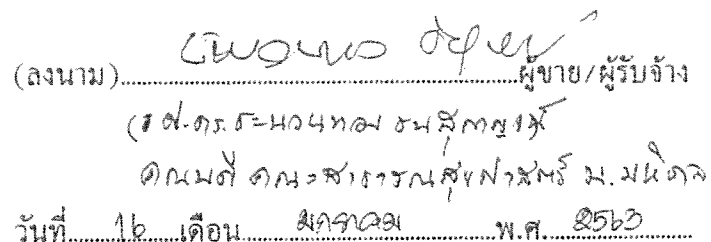 (ลงนาม)..............................ผู้ขาย/ผู้รับจ้าง
(รศ.ดร.ฉะนวนทอง ธนสุกาญจน์
คณบดี คณะสาธารณสุขศาสตร์ ม.มหิดล
วันที่ 16 เดือน มกราคม พ.ศ. 2563